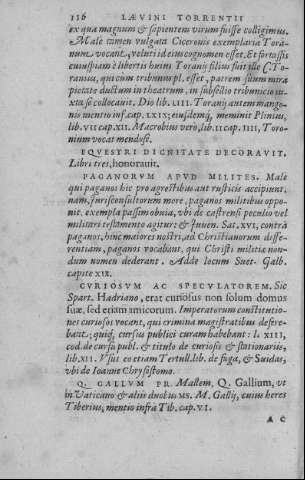 116 LÆVINI TORRENTII
ex qua magnum & sapientem virum fuisse colligimus.
Male tamen vulgata Ciceronis exemplaria Torã-
num vocant, veluti id eius cognomen esset. Et fortassis
cuiuspiam è libertis huius Toranij filius fuit ille C. To-
ranius, qui cum tribunus pl. esset, patrem suum mira
pietate ductum in theatrum, in subsellio tribunicio iu-
xta se collocavit. Dio lib. LIII. Toranij autem mango-
nis mentio inf. cap. LXIX; eiusdemq; meminit Plinius,
lib. VII cap. XII. Macrobius verò, lib. II cap. IIII, Toro-
nium vocat mendosè.
EQVESTRI DIGNITATE DECORAVIT.
Libri tres, honorauit.
PAGANORVM APVD MILITES. Male
qui paganos hîc pro agrestibus aut rusticis accipiunt.
nam, iurisconsultorum more, paganos militibus oppo-
nit. exempla passim obuia, vbi de castrensi peculio vel
militari testamento agitur: & Iuuen. Sat. XVI, contrà
paganũ, hinc maiores nostri, ad Christianorum diffe-
rentiam, paganos vocabant, qui Christi militiæ non-
dum nomen dederant. Adde locum Suet. Galb.
capite XIX.
CVRIOSVM AC SPECVLATOREM. Sic
Spart. Hadriano, erat curiosus non solum domus
suæ, sed etiam amicorum. Imperatorum constitutio-
nes curiosos vocant, qui crimina magistratibus defere-
bant; quiq; cursus publici curam habebant: l. XIII,
cod. de cursu publ. & titulo de curiosis & stationariis,
lib. XII. Vsus eo etiam Tertull. lib. de fuga, & Suidas,
vbi de Ioanne Chrysostomo.
Q. GALLVM PR. Mallem, Q. Gallium, vt
in Vaticano & aliis duobus MS. M. Gallij, cuius heres
Tiberius, mentio infra Tib. cap. VI.
A C